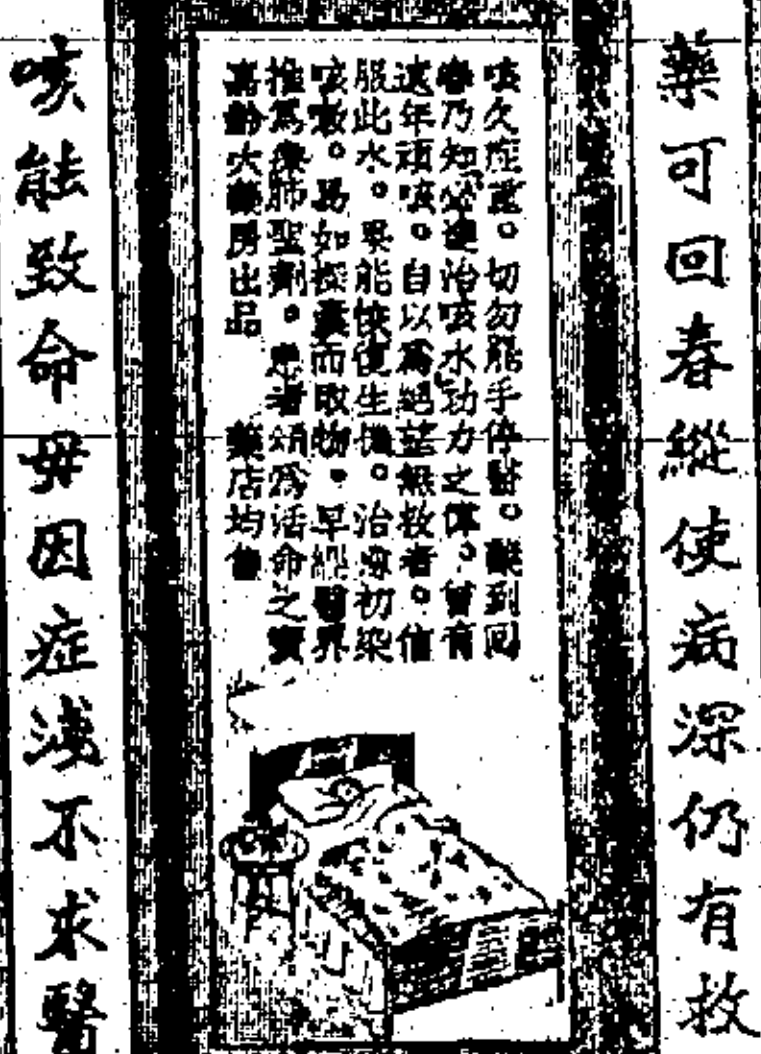 藥可回春縱使病深仍有救
咳久症重。切勿罷手停醫。藥到回
春乃知必達治咳水功力之偉。曾有
遠年頑咳。自以爲絕望無救者。值
服此水。果能恢復生機。治療初染
咳嗽。易如探囊而取物。早經醫界
推爲療肺聖劑。患者頌爲活命之寶
高齡大藥房出品 藥店均售
咳能致命毋因症淺不求醫